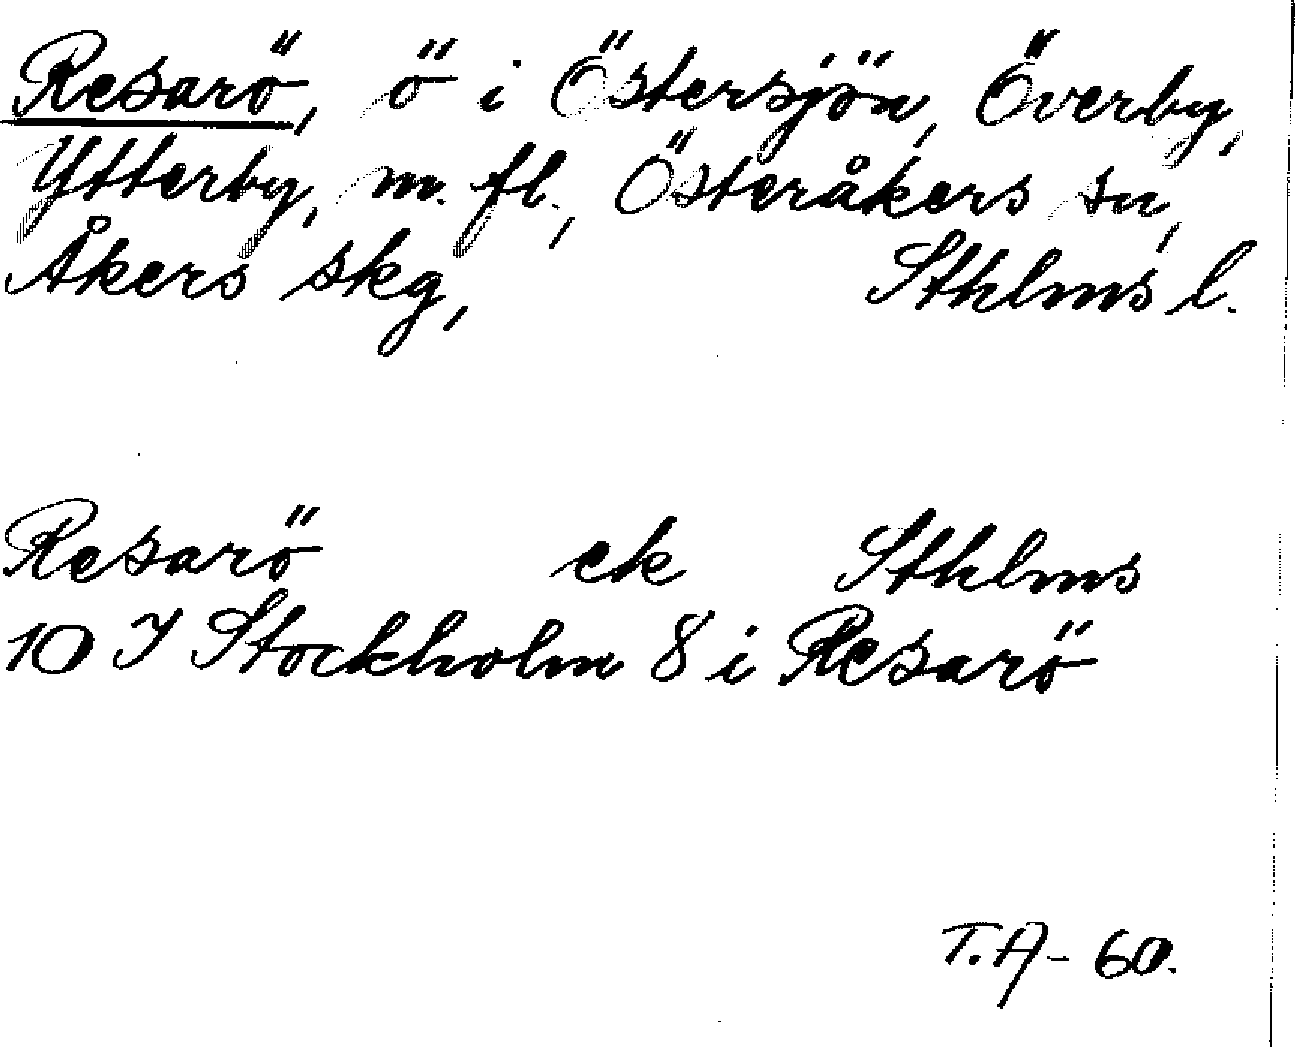 Resarö, ö i Östersjön, Överby,
Ytterby, m. fl., Österåkers sn,
Åkers skg, Sthlms l.
Resarö ek Sthlms
10 I Stockholm 8 i Resarö
T.A-60.